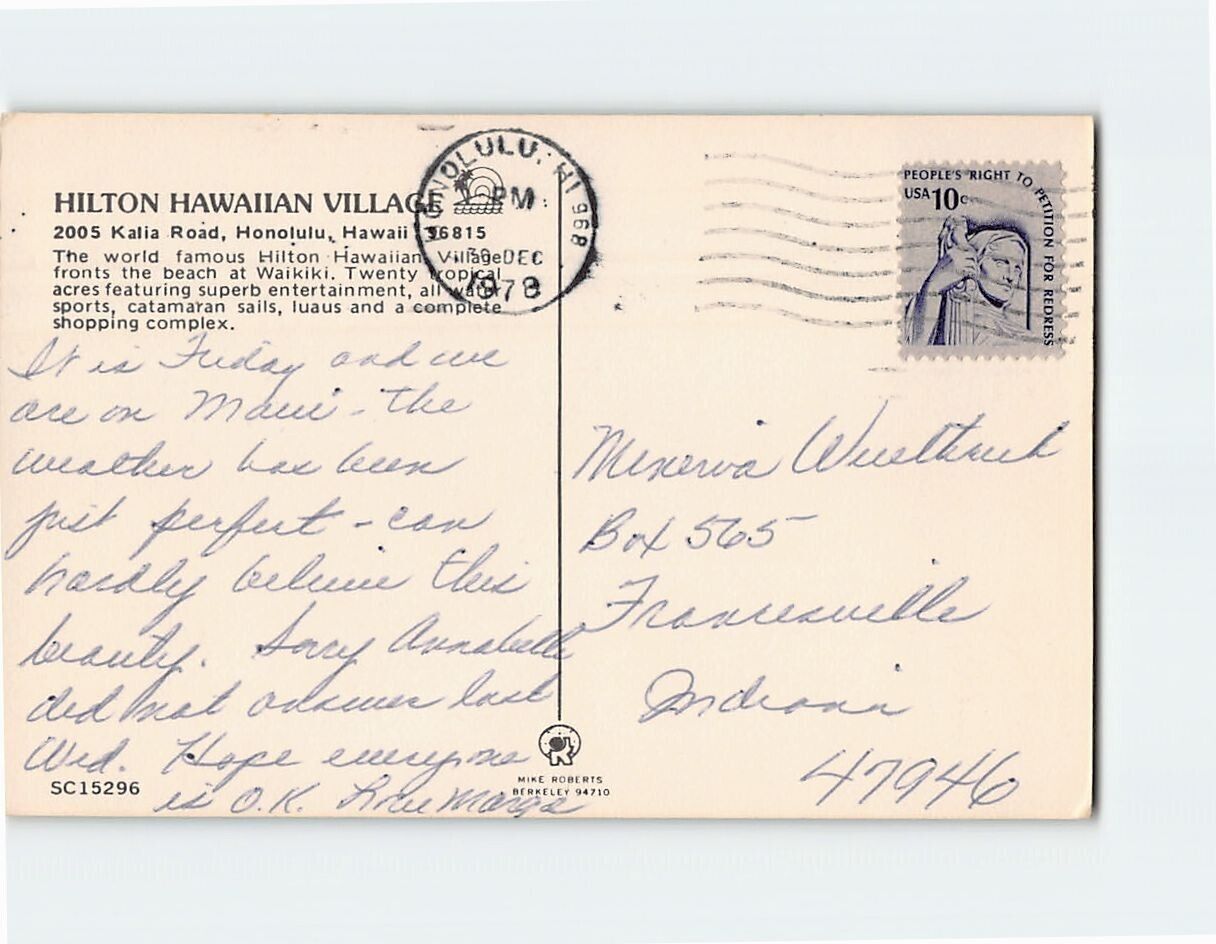 HILTON HAWAIIAN VILLAGE
2005 Kalia Road, Honolulu, Hawaii 96815
The world famous Hilton Hawaiian Village
fronts the beach at Waikiki. Twenty tropical
acres featuring superb entertainment, all water
sports, catamaran sails, luaus and a complete
shopping complex.
HONOLULU, HI 968
PM
30 DEC
1978
PEOPLE'S RIGHT TO PETITION FOR REDRESS
USA 10c
It is Friday and we
are on Maui - the
weather has been
just perfect - can
hardly believe this
beauty. Sorry Annabelle
did not answer last
Wed. Hope everyone
is O.K. Love Marge
SC15296
MIKE ROBERTS
BERKELEY 94710
Minerva
Box 565
Francesville
Indiana
47946